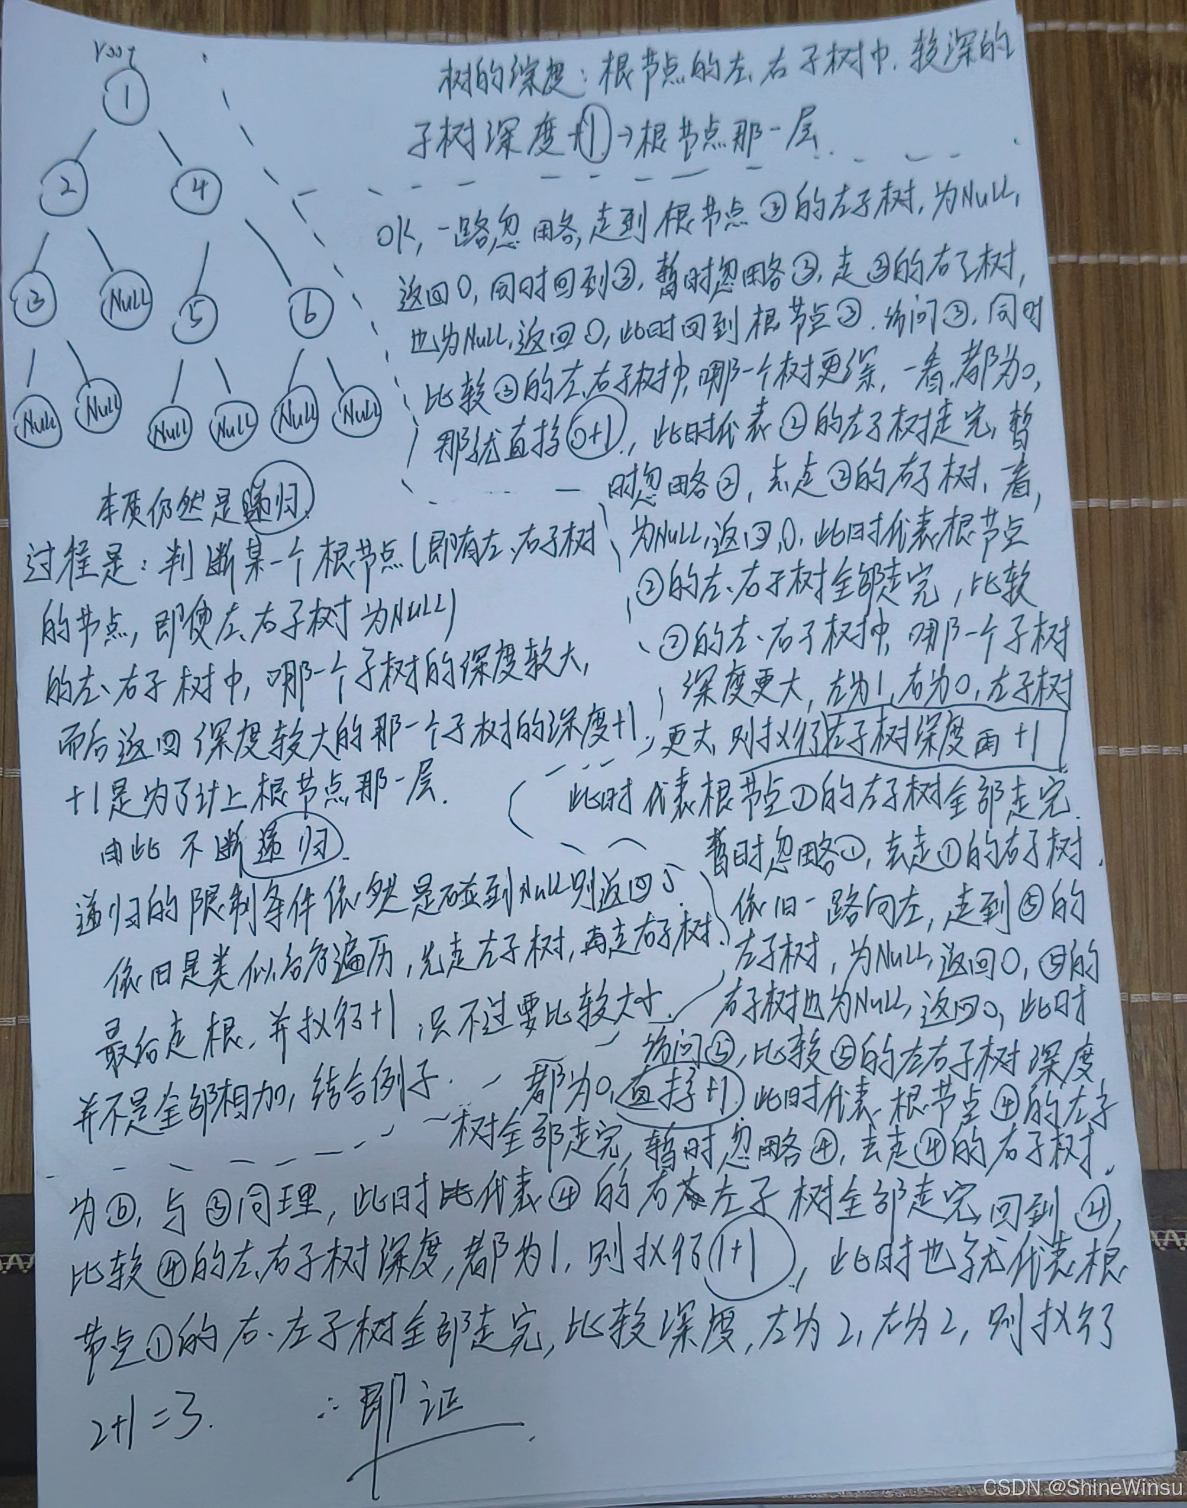 root
1
2
4
3
Null
5
6
Null
Null
Null
Null
Null
Null
树的深度：根节点的左、右子树中，较深的
子树深度+1→根节点那一层
OK，一路忽略，走到根节点③的左子树，为Null，
返回0，同时回到③，暂时忽略③，走③的右子树，
也为Null，返回0，此时回到根节点③，访问③，同时
比较③的左、右子树中，哪一个树更深，一看，都为0，
那就直接0+1，此时代表②的左子树走完，暂
时忽略②，去走②的右子树，一看，
为Null，返回0，此时代表根节点
②的左、右子树全部走完，比较
②的左、右子树中，哪一个子树
深度更大，左为1，右为0，左子树
更大，则执行左子树深度再+1
此时代表根节点①的左子树全部走完
暂时忽略①，去走①的右子树，
依旧一路向左，走到⑤的
左子树，为Null，返回0，⑤的
右子树也为Null，返回0，此时
访问⑤，比较⑤的左右子树深度
都为0，直接+1，此时代表根节点④的左子
树全部走完，暂时忽略④，去走④的右子树，
为⑥，与⑤同理，此时代表④的右、左子树全部走完，回到④，
比较④的左、右子树深度，都为1，则执行1+1，此时也就代表根
节点①的右、左子树全部走完，比较深度，左为2，右为2，则执行
2+1=3.
∴即证
本质仍然是递归.
过程是：判断某一个根节点(即有左、右子树
的节点，即便左、右子树为Null)
的左、右子树中，哪一个子树的深度较大，
而后返回深度较大的那一个子树的深度+1，
+1是为了计上根节点那一层.
由此不断递归.
递归的限制条件依然是碰到Null则返回
依旧是类似后序遍历，先走左子树，再走右子树，
最后走根，并执行+1，只不过要比较大小
并不是全部相加，结合例子.
CSDN @ShineWinsu